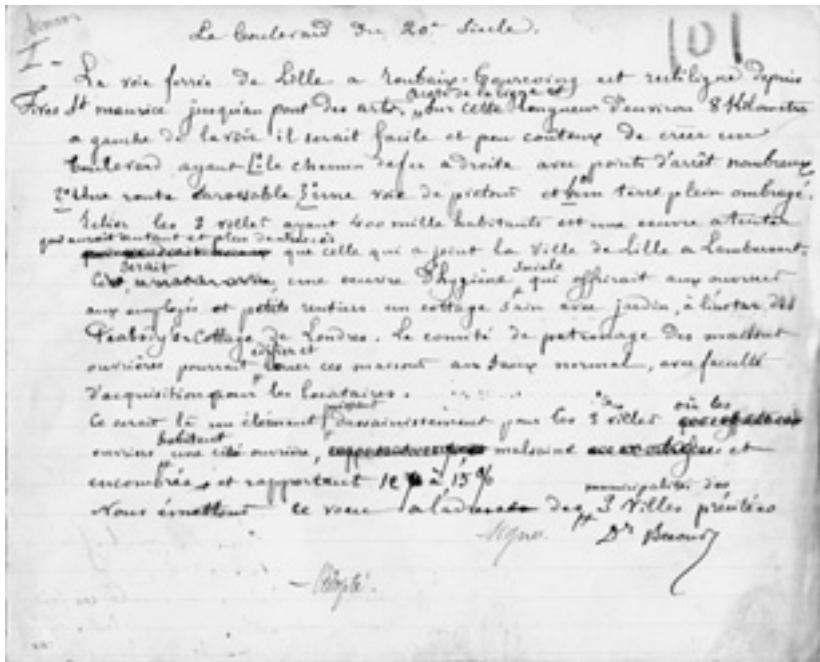 Le boulevard du 20e Siècle.
101
I -
La voie ferrée de Lille a Roubaix-Tourcoing est rectiligne depuis
Fives St maurice jusqu'au pont des arts. Sur cette longueur d'environ 8 Kilometres
a gauche de la voie il serait facile et peu couteux de créer un
boulevard ayant 1° le chemin de fer a droite avec points d'arrêt nombreux
2° Une route carossable, 3° une voie de pietons et un terre plein ombragé.
Relier les 3 villes ayant 400 mille habitants est une oeuvre a tenter
qui aurait autant et plus de succès
que celle qui a joint la Ville de Lille a Lambersart.
serait
une oeuvre d'hygiène sociale qui offrirait aux ouvriers
aux employés et petits rentiers un cottage sain avec jardin, à l'instar des
Peabody's Cottage de Londres. Le comité de patronage des maisons
édifier et
ouvrières pourrait louer ces maisons au taux normal, avec faculté
d'acquisition pour les locataires.
Ce serait là un élément puissant d'assainissement pour les 3 villes où les
habitent
ouvriers une cité ouvrière, malsaine et
encombrée, et rapportant à 15%
municipalités des
Nous émettons ce voeu a l'adresse des 3 Villes précitées
signé Dr
- Adopté.